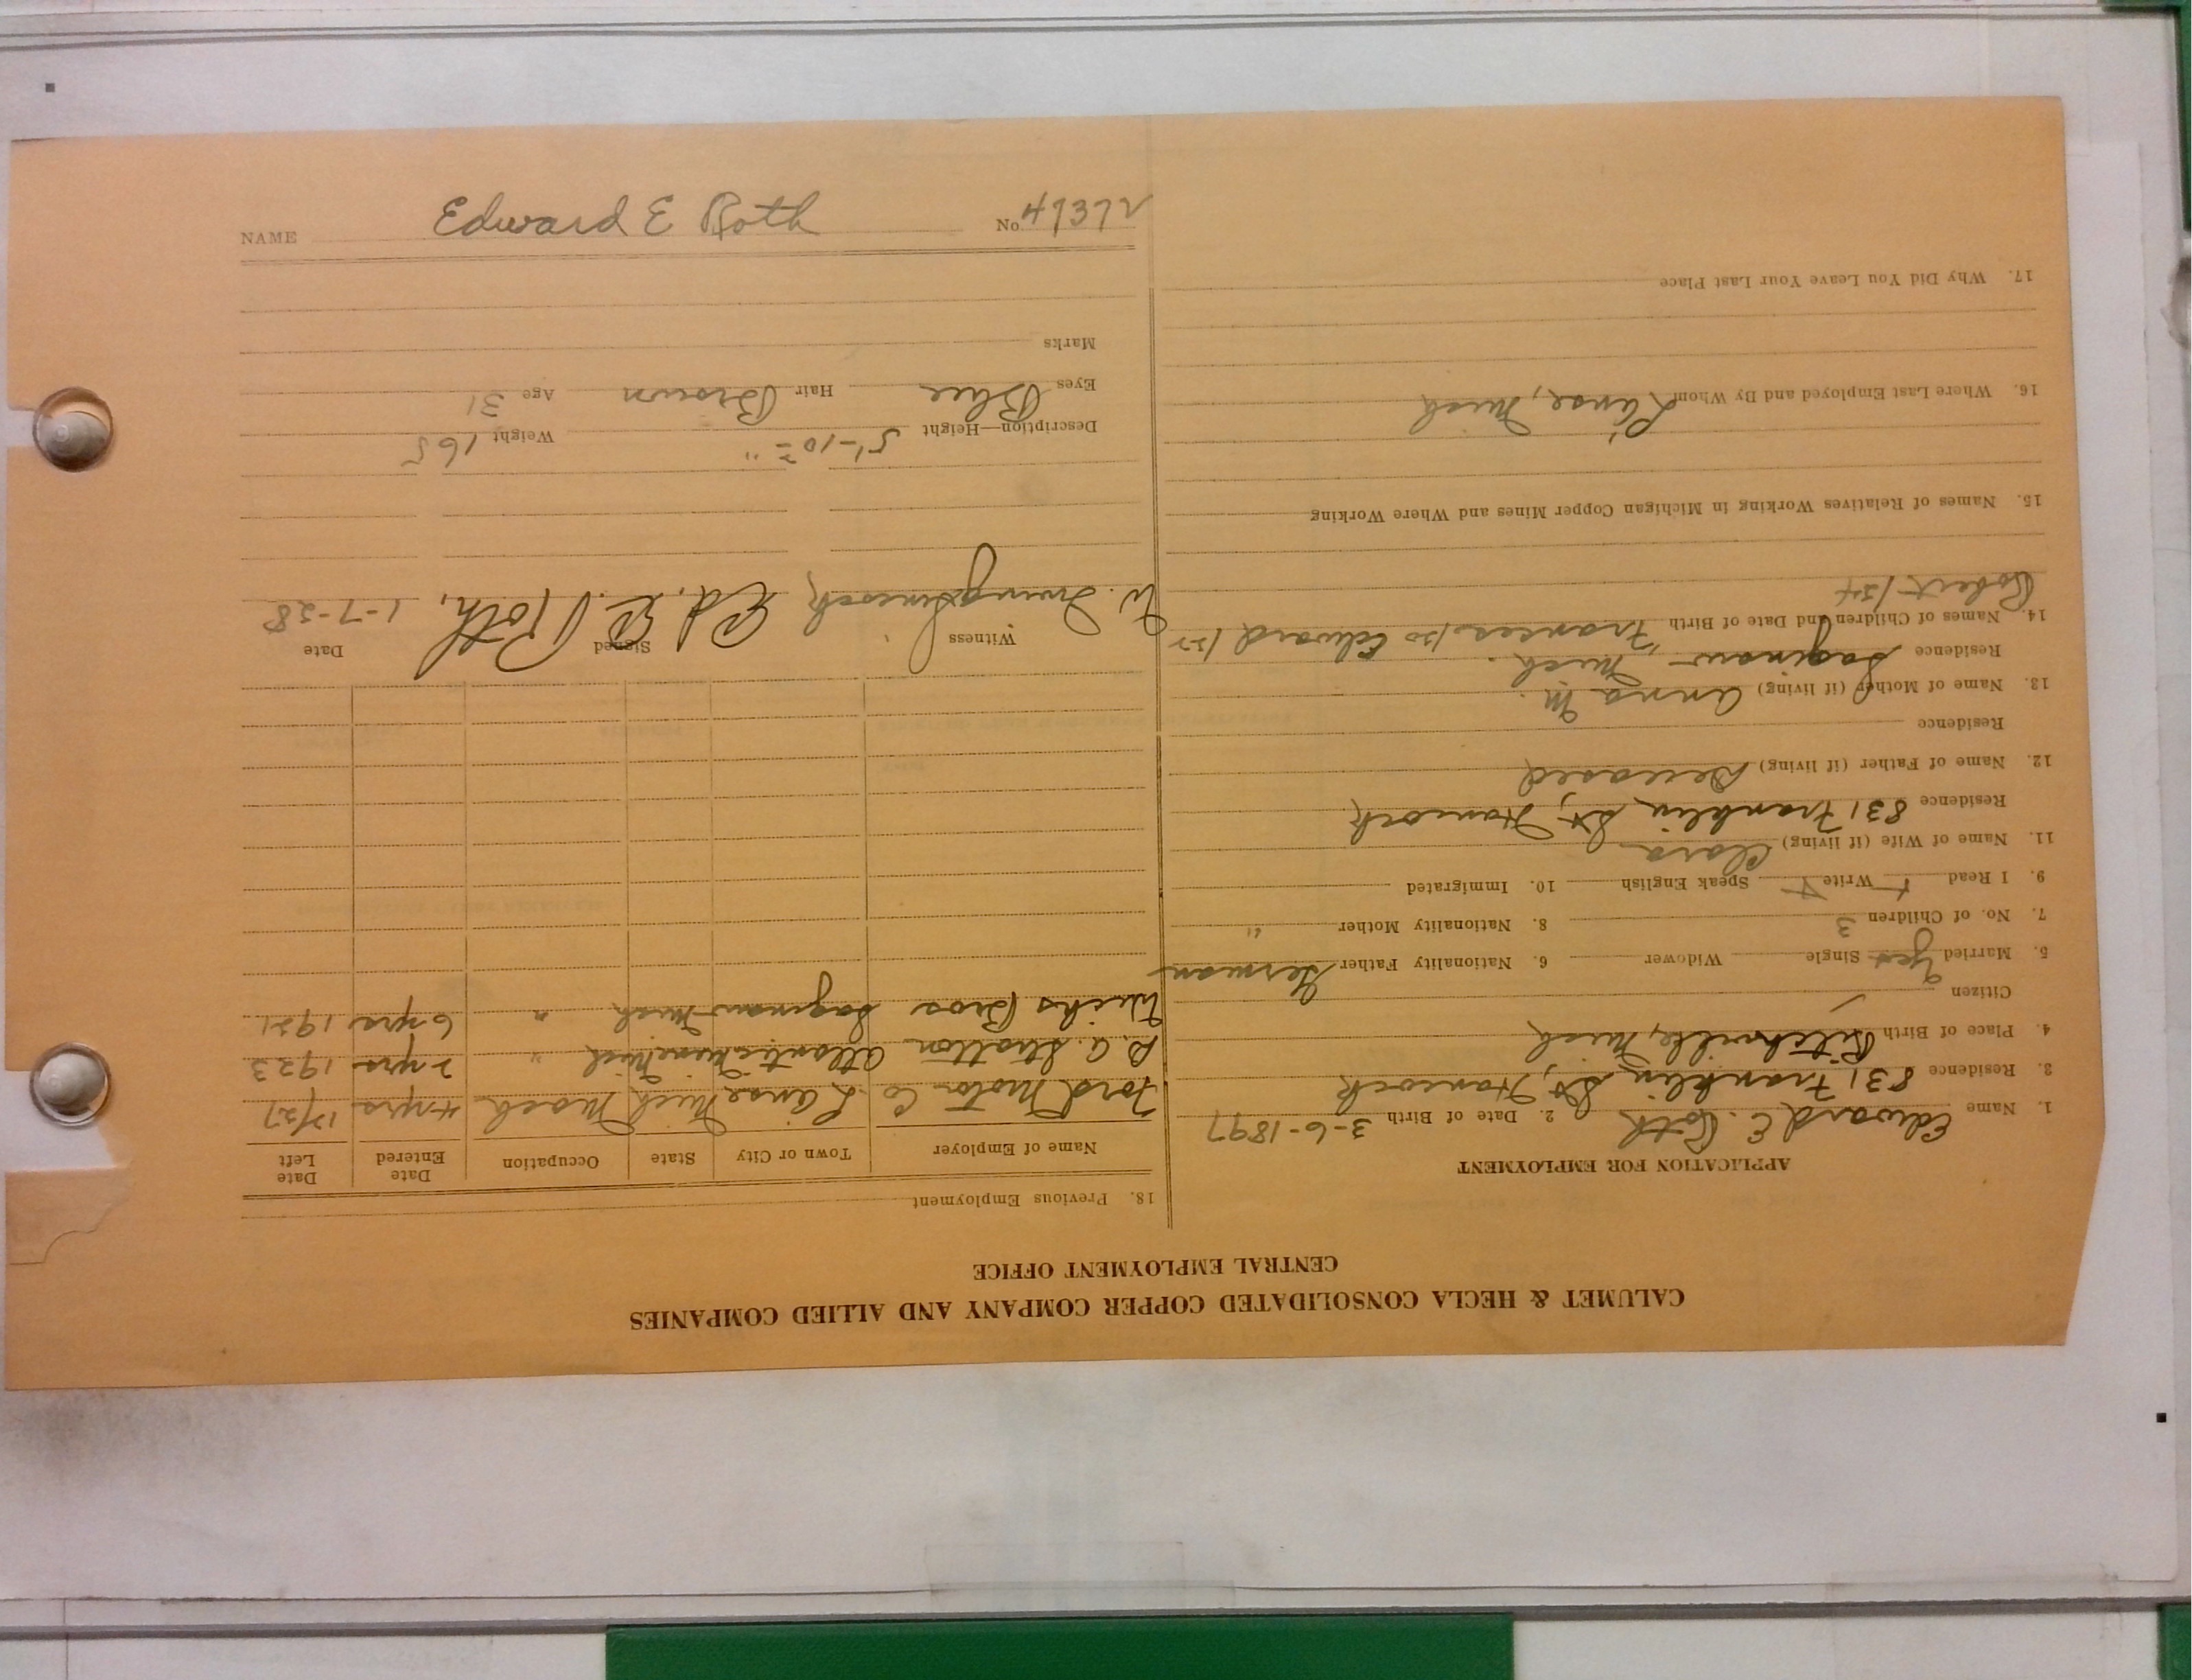 CALUMET & HECLA CONSOLIDATED COPPER COMPANY AND ALLIED COMPANIES
CENTRAL EMPLOYMENT OFFICE
APPLICATION FOR EMPLOYMENT
1. Name Edward E. Roth 2. Date of Birth 3-6-1897
3. Residence 831 Franklin St, Hancock
4. Place of Birth Mich
Citizen
5. Married Yes Single Widower 6. Nationality Father German
7. No. of Children 3 8. Nationality Mother "
9. I Read Write Speak English 10. Immigrated
11. Name of Wife (if living) Clara
Residence 831 Franklin St, Hancock
12. Name of Father (if living) Deceased
Residence
13. Name of Mother (if living) Anna M.
Residence Saginaw, Mich.
14. Names of Children and Date of Birth Frances Edward
Robert
15. Names of Relatives Working in Michigan Copper Mines and Where Working
16. Where Last Employed and By Whom L'anse, Mich
17. Why Did You Leave Your Last Place
18. Previous Employment
Name of Employer Town or City State Occupation Date Entered Date Left
Ford Motor Co L'anse Mich Mach 4 yrs 12/27
Stratton Atlantic Mine Mich " 2 yrs 1923
Wicks Bros Saginaw Mich " 6 yrs 1921
Witness Signed Date
W. Ed. E. Roth. 1-7-28
Description—Height 5'-10 Weight 165
Eyes Blue Hair Brown Age 31
Marks
NAME Edward E Roth No. 47372